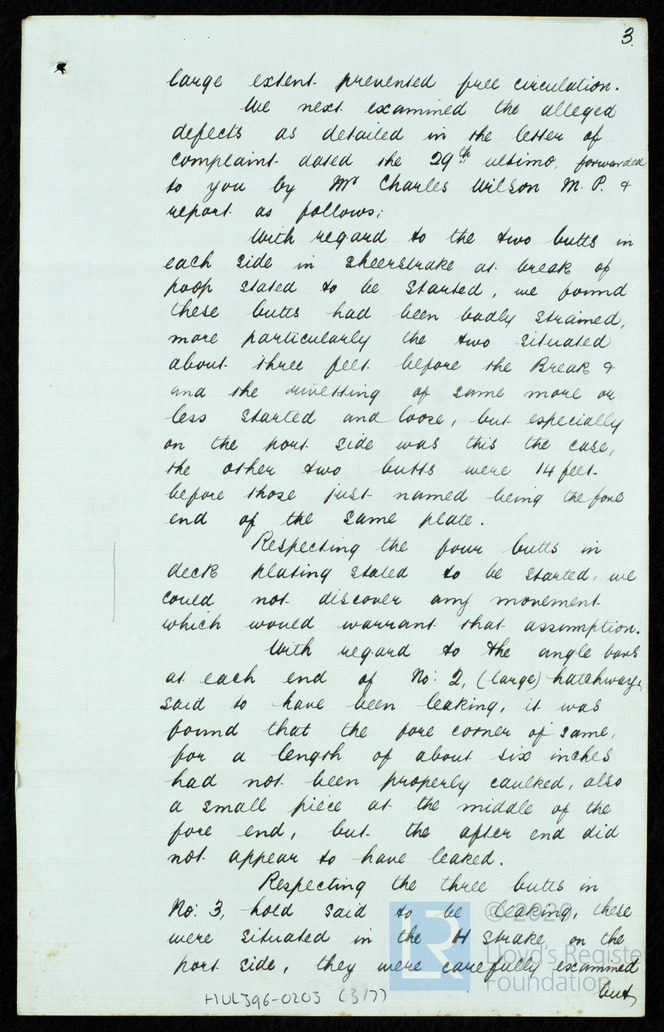 3.
large extent prevented free circulation.
We next examined the alleged
defects as detailed in the letter of
complaint dated the 29th ultimo, forwarded
to you by Mr Charles Wilson M.P. &
report as follows;
With regard to the two butts in
each side in sheerstrake at break of
poop stated to be started, we found
these butts had been badly strained,
more particularly the two situated
about three feet before the Break &
and the rivetting of same more or
less started and loose, but especially
on the port side was this the case,
the other two butts were 14 feet
before those just named being the fore
end of the same plate.
Respecting the four butts in
deck plating stated to be started, we
could not discover any movement
which would warrant that assumption.
With regard to the angle bars
at each end of No: 2, (large) hatchways
said to have been leaking, it was
found that the fore corner of same,
for a length of about six inches
had not been properly caulked, also
a small piece at the middle of the
fore end, but the after end did
not appear to have leaked.
Respecting the three butts in
No: 3, hold said to be leaking, these
were situated in the H strake on the
port side, they were carefully examined
but,
HUL396-0203 (3/7)
LR
© 2020
Lloyd's Register
Foundation